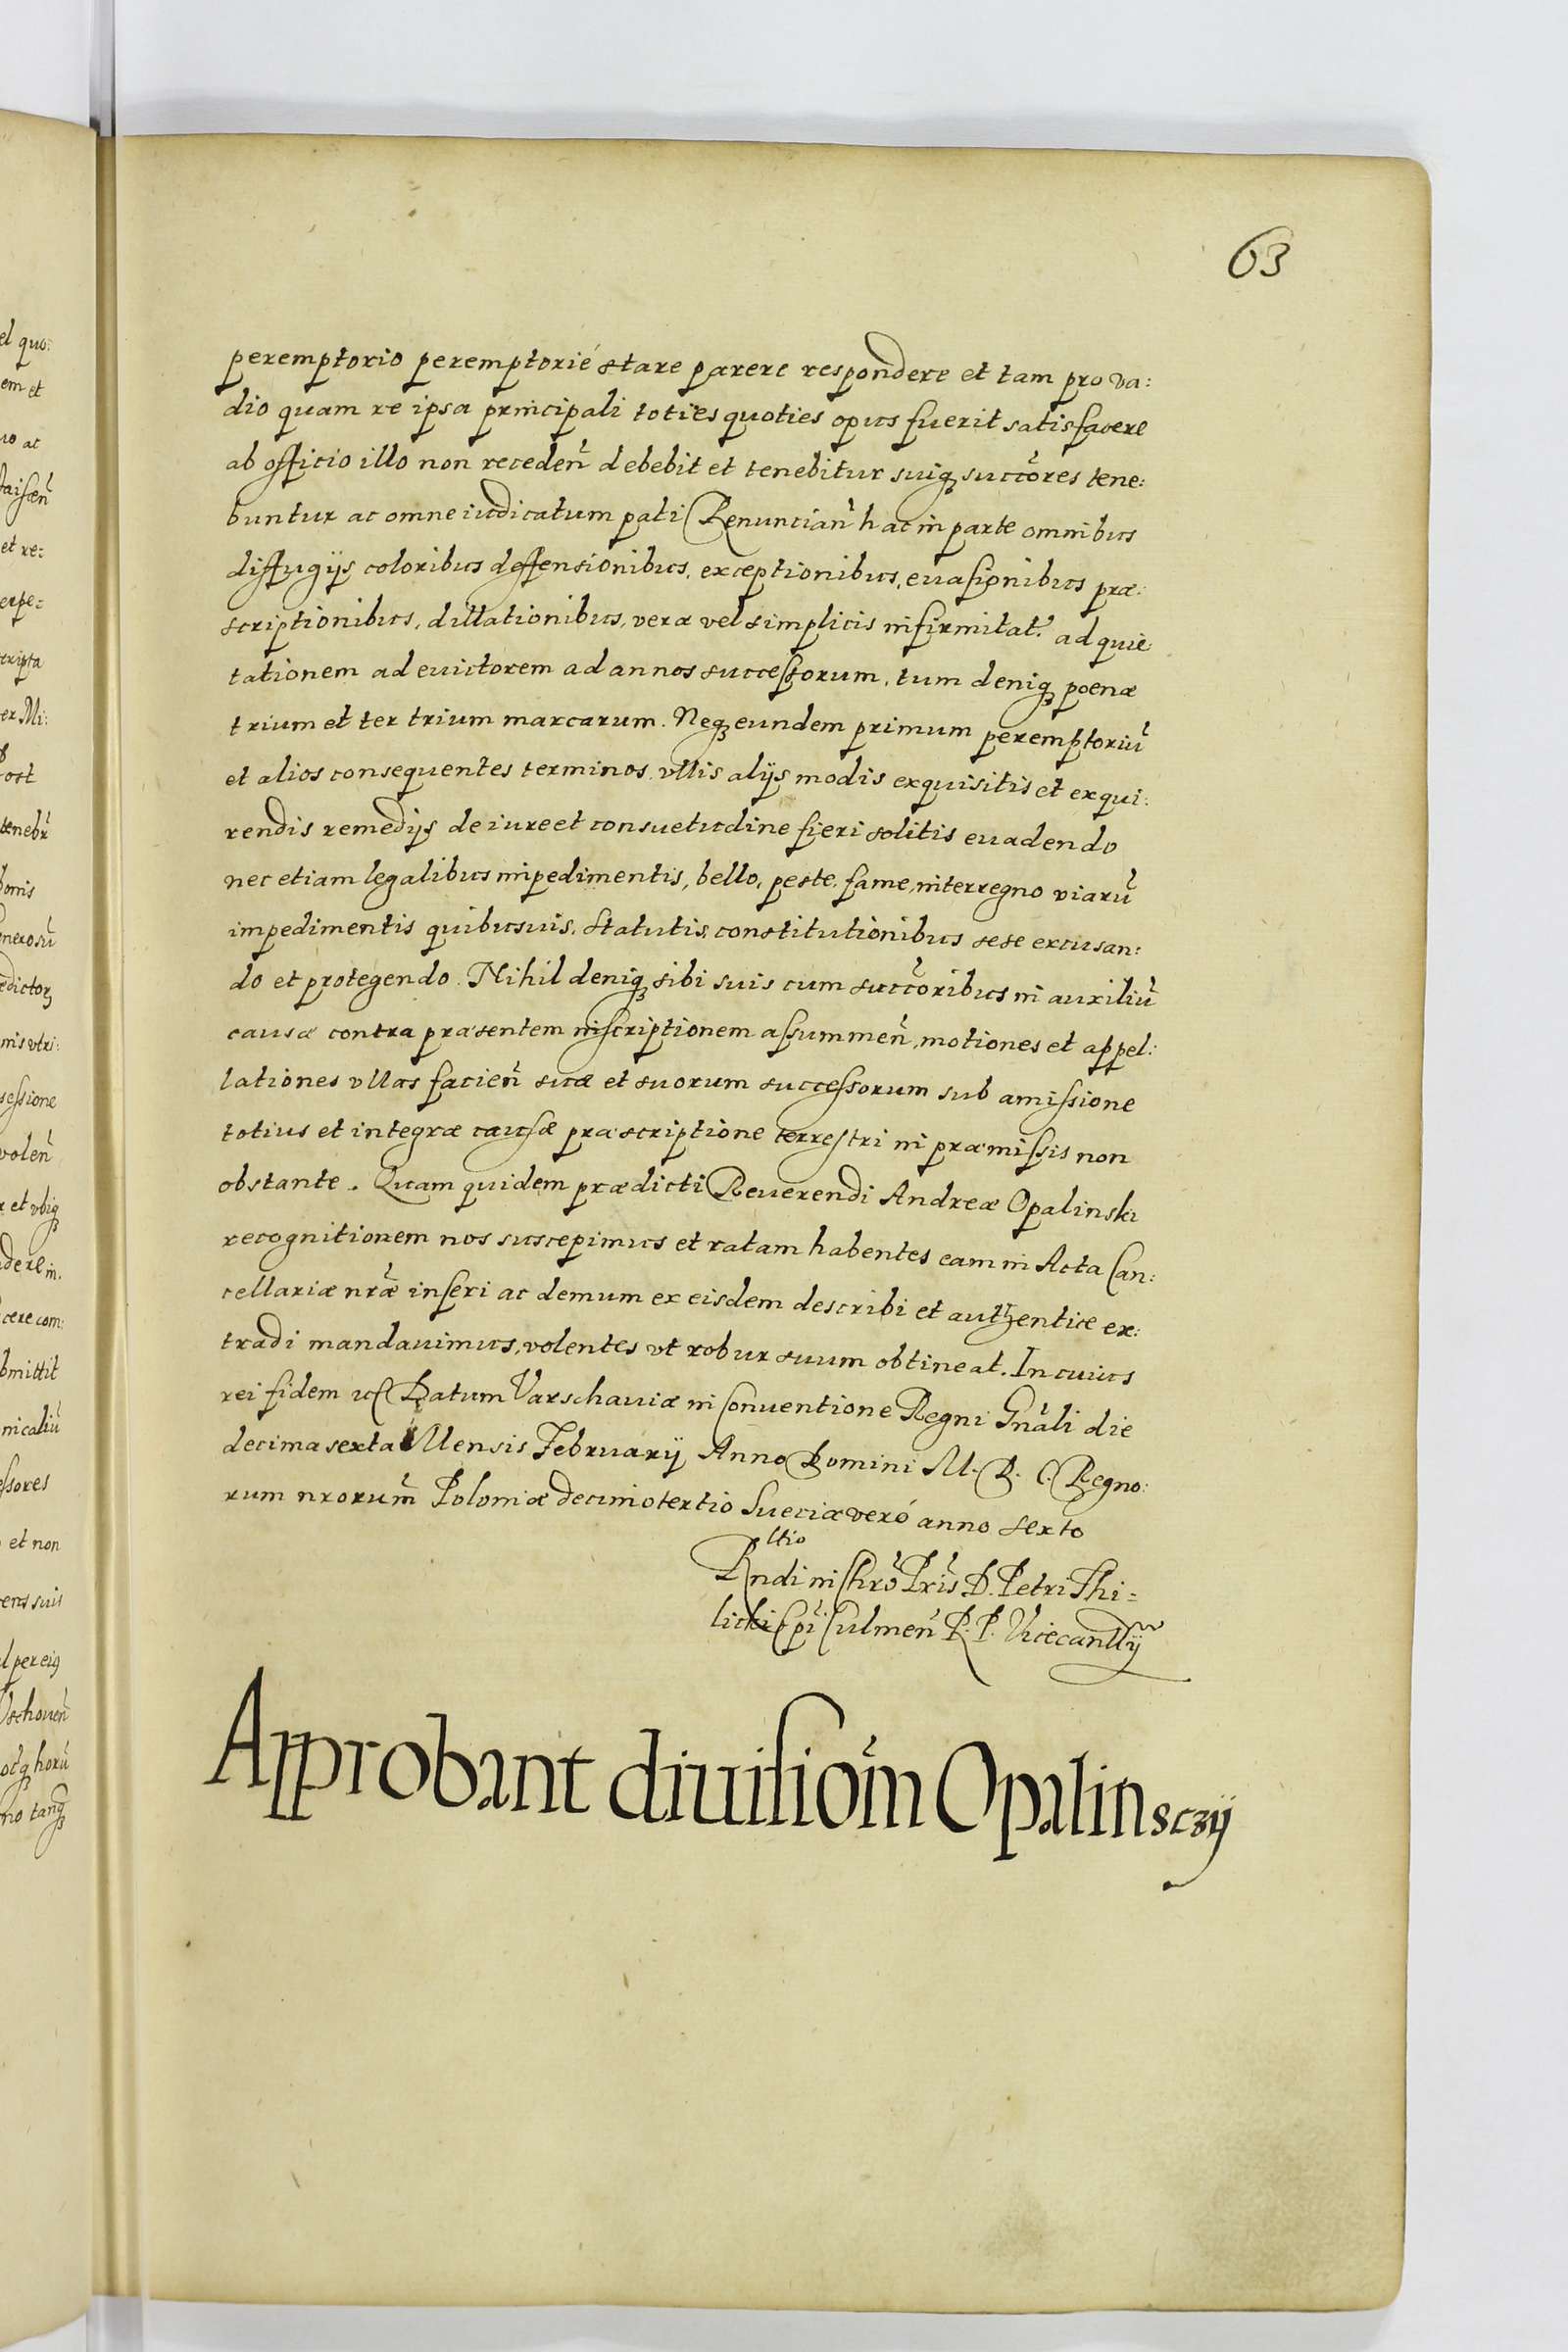 63
peremptorio peremptorié stare parere respondere et tam pro va:
dio quam re ipsa principali toties quoties opus fuerit satisfacere
ab officio illo non receden̄ debebit et tenebitur suiq₃ succ̄ores tene:
buntur ac omne iudicatum pati Renuncian̄ hac in parte omnibus
diffugijs coloribus deffensionibus, exceptionibus, euasionibus præ:
scriptionibus, dillationibus, veræ vel simplicis infirmitat. ad quie
tationem ad euictorem ad annos successorum, tum deniq₃ poenæ
trium et ter trium marcarum. Neq₃ eundem primum peremptoriū
et alios consequentes terminos, vllis alijs modis exquisitis et exqui:
rendis remedijs de iure et consuetudine fieri solitis euadendo
nec etiam legalibus impedimentis, bello, peste, fame, interregno viarū
impedimentis quibusuis, statutis, constitutionibus sese excusan:
do et protegendo. Nihil deniq₃ sibi suis cum succ̄oribus in auxiliū
causæ contra præsentem inscriptionem assummen̄, motiones et appel:
lationes vllas facien̄ suæ et suorum successorum sub amissione
totius et integræ causæ præscriptione terrestri in præmissis non
obstante. Quam quidem prædicti Reuerendi Andreæ Opalinski
recognitionem nos suscepimus et ratam habentes eam in Acta Can:
cellariæ nr̄æ inseri ac demum ex eisdem describi et authentice ex:
tradi mandauimus, volentes vt robur suum obtineat. In cuius
rei fidem Datum Varschauiæ in Conuentione Regni Gn̄ali die
decima sexta Mensis Februarij Anno Domini M. D. C. Regno:
rum nrorum̄ Poloniæ decimo tertio Sueciæ veró anno sexto
Rltio
Rndi in Chrō Pr̄is D. Petri Thi=
licki Epī Culmen̄ R. P. Vicecancllrij
Approbant diuisiōm Opalinsczij